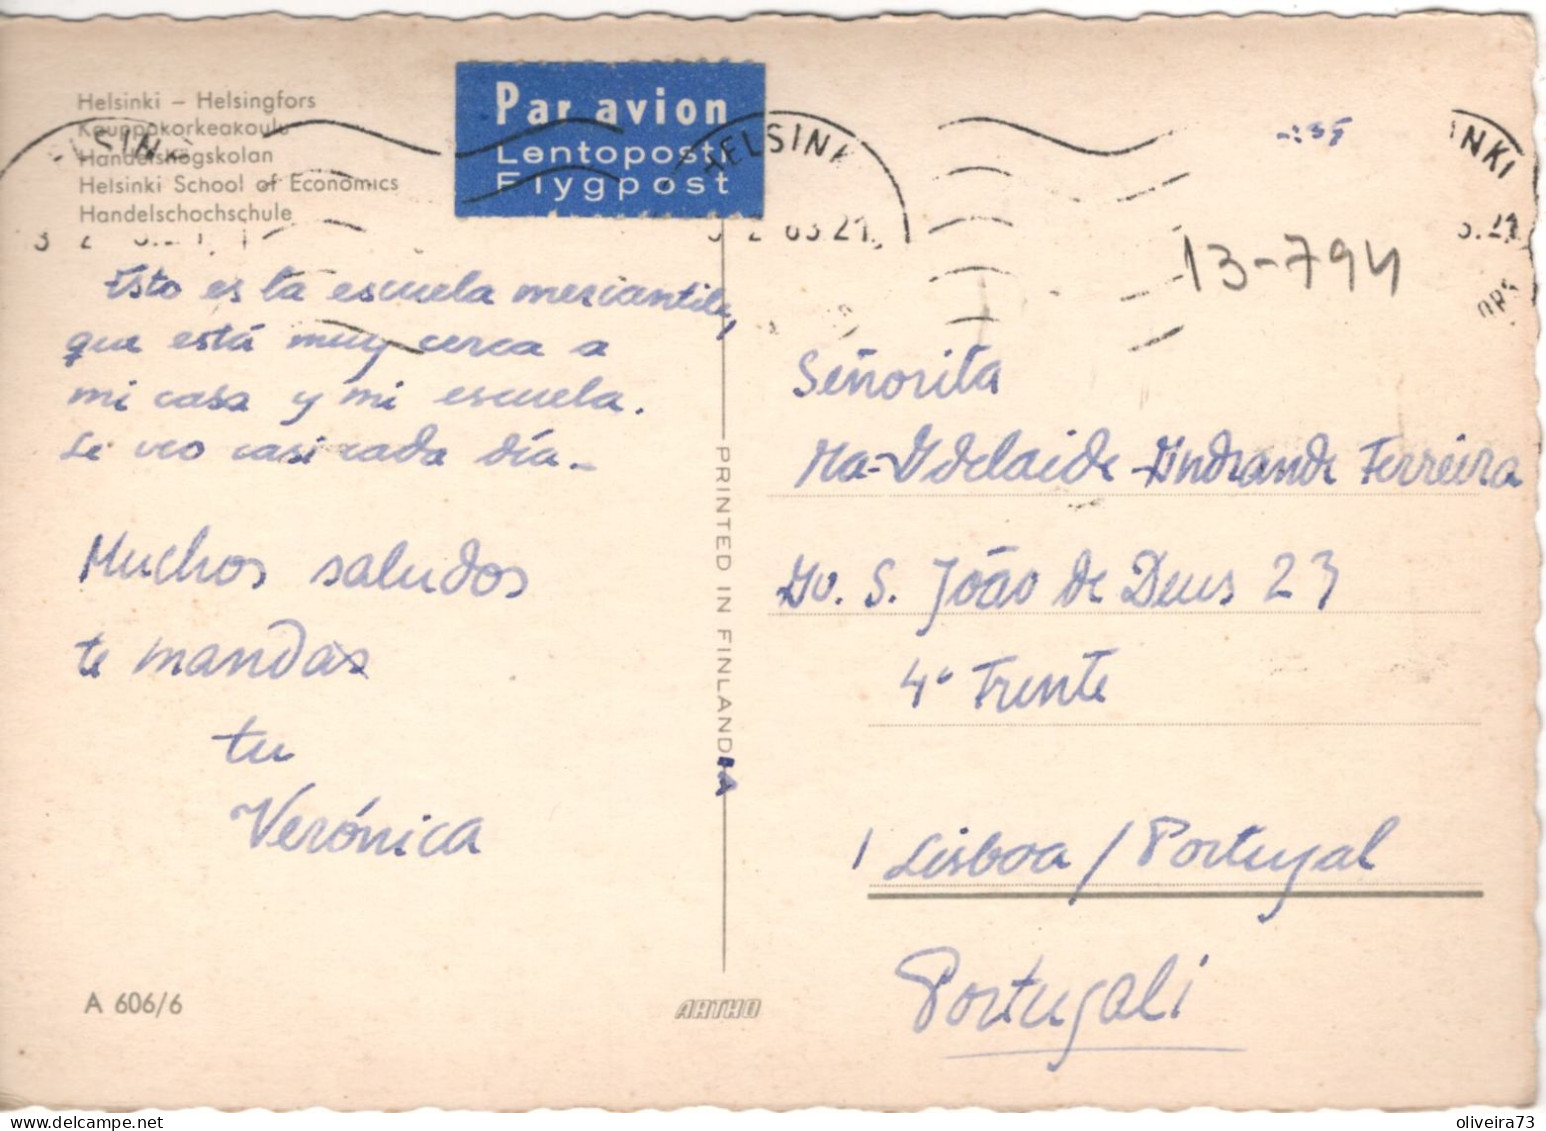 Helsinki – Helsingfors
Kauppakorkeakoulu
Handelshögskolan
Helsinki School of Economics
Handelschochschule
Par avion
Lentoposti
Flygpost
HELSINKI
3 2 63.21
Esto es la escuela mercantile,
que está muy cerca a
mi casa y mi escuela.
Le veo casi cada día.
Muchos saludos
te mandas
tu
Verónica
A 606/6
PRINTED IN FINLAND
ARTKO
13-794
Señorita
Ma-Adelaide Andrande Ferreira
Av. S. João de Deus 23
4° Trente
Lisboa / Portugal
Portugali
oliveira73